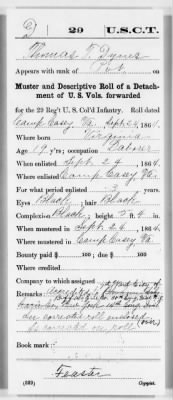 29 U.S.C.T.
Thomas T. Dynes
Appears with rank of Pvt. on
Muster and Descriptive Roll of a Detach-
ment of U. S. Vols. forwarded
for the 29 Reg't U. S. Col'd Infantry. Roll dated
Camp Casey Va. Sept. 26, 1864.
Where born Virginia
Age 19 y'rs; occupation Laborer
When enlisted Sept. 24, 1864.
Where enlisted Camp Casey Va.
For what period enlisted 3 years.
Eyes Black; hair Black
Complexion Black; height 5 ft. 4 in.
When mustered in Sept. 26, 1864.
Where mustered in Camp Casey Va.
Bounty paid $ 100; due $ 100
Where credited
Company to which assigned
Remarks:
see corrected roll enclosed
corrected on roll (over)
Book mark:
(339) Copyist.